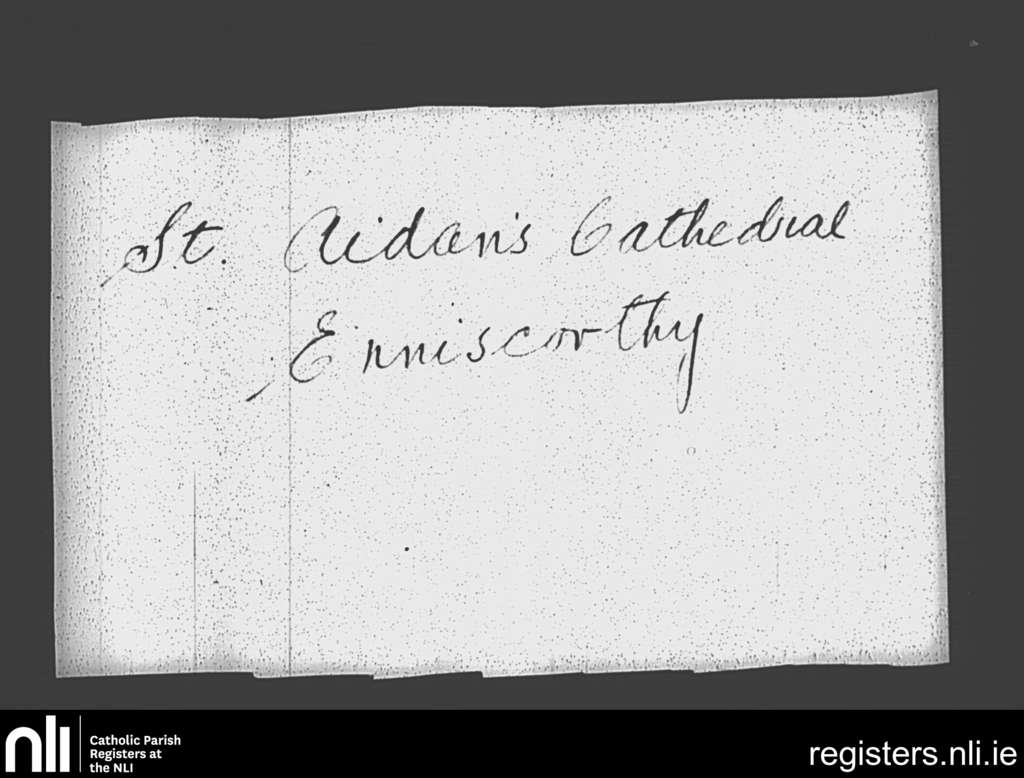 St. Aidan's Cathedral
Enniscorthy
nli
Catholic Parish
Registers at
the NLI
registers.nli.ie